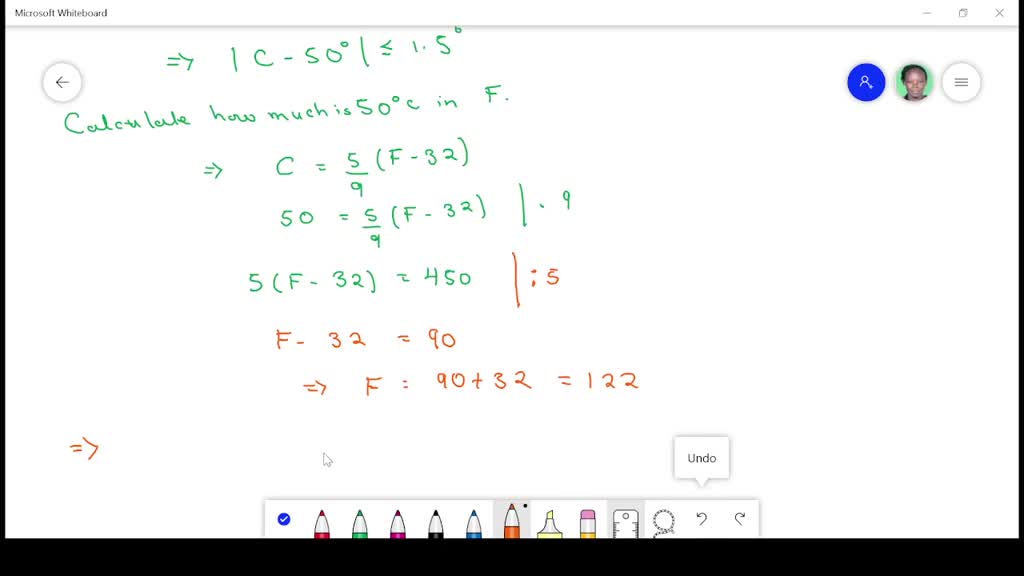 Microsoft Whiteboard
=> | C - 50° | ≤ 1.5°
Calculate how much is 50°c in F.
=> C = 5/9 (F - 32)
50 = 5/9 (F - 32) | . 9
5 (F - 32) = 450 | : 5
F - 32 = 90
=> F = 90 + 32 = 122
=>
Undo